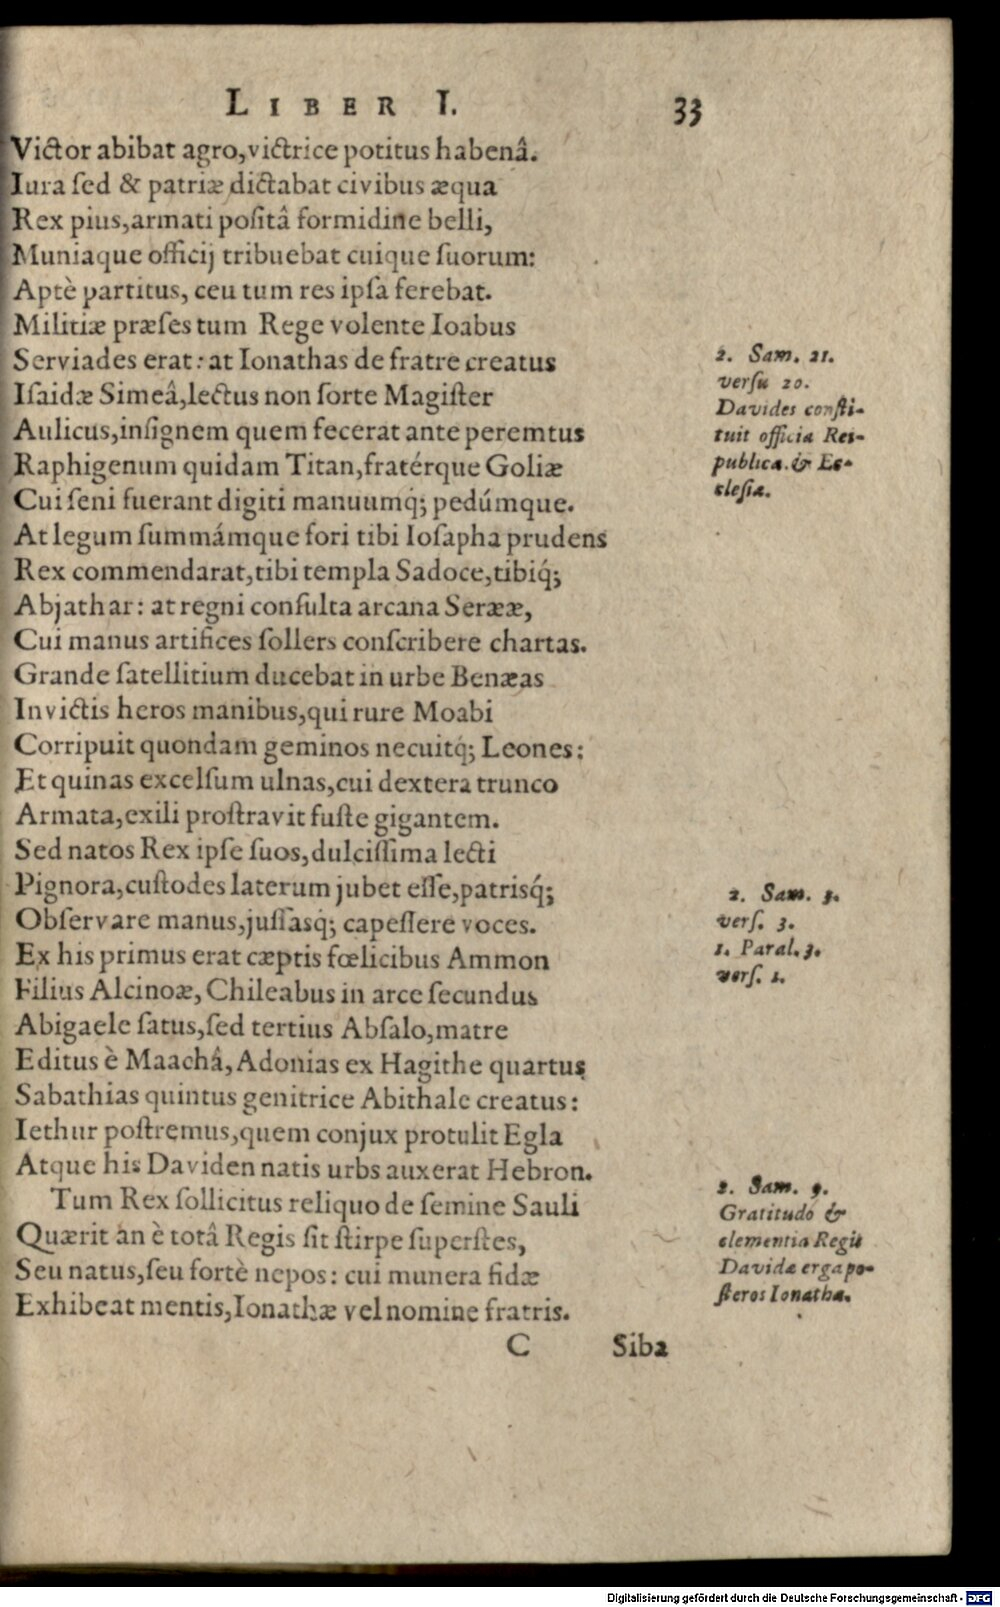 LIBER I. 33
Victor abibat agro, victrice potitus habenâ.
Iura ſed & patriæ dictabat civibus æqua
Rex pius, armati poſitâ formidine belli,
Muniaque officij tribuebat cuique ſuorum:
Aptè partitus, ceu tum res ipſa ferebat.
Militiæ præſes tum Rege volente Ioabus
Serviades erat: at Ionathas de fratre creatus
Iſaidæ Simeâ, lectus non ſorte Magiſter
Aulicus, inſignem quem fecerat ante peremtus
Raphigenum quidam Titan, fratérque Goliæ
Cui ſeni fuerant digiti manuumq́; pedúmque.
At legum ſummámque fori tibi Ioſapha prudens
Rex commendarat, tibi templa Sadoce, tibiq́;
Abjathar: at regni conſulta arcana Serææ,
Cui manus artifices ſollers conſcribere chartas.
Grande ſatellitium ducebat in urbe Benæas
Invictis heros manibus, qui rure Moabi
Corripuit quondam geminos necuitq́; Leones:
Et quinas excelſum ulnas, cui dextera trunco
Armata, exili proſtravit fuſte gigantem.
Sed natos Rex ipſe ſuos, dulciſſima lecti
Pignora, cuſtodes laterum jubet eſſe, patrisq́;
Obſervare manus, juſſasq́; capeſſere voces.
Ex his primus erat cæptis fœlicibus Ammon
Filius Alcinoæ, Chileabus in arce ſecundus
Abigaele ſatus, ſed tertius Abſalo, matre
Editus è Maachâ, Adonias ex Hagithe quartus
Sabathias quintus genitrice Abithale creatus:
Iethur poſtremus, quem conjux protulit Egla
Atque his Daviden natis urbs auxerat Hebron.
Tum Rex ſollicitus reliquo de ſemine Sauli
Quærit an è totâ Regis ſit ſtirpe ſuperſtes,
Seu natus, ſeu fortè nepos: cui munera fidæ
Exhibeat mentis, Ionathæ vel nomine fratris.
C Siba
2. Sam. 21.
verſu 20.
Davides conſti-
tuit officia Rei-
publicæ. & Ec-
cleſiæ.
2. Sam. 3.
verſ. 3.
1. Paral. 3.
verſ. 1.
2. Sam. 9.
Gratitudo &
clementia Regis
Davidæ erga po-
ſteros Ionathæ.
Digitalisierung gefördert durch die Deutsche Forschungsgemeinschaft - DFG